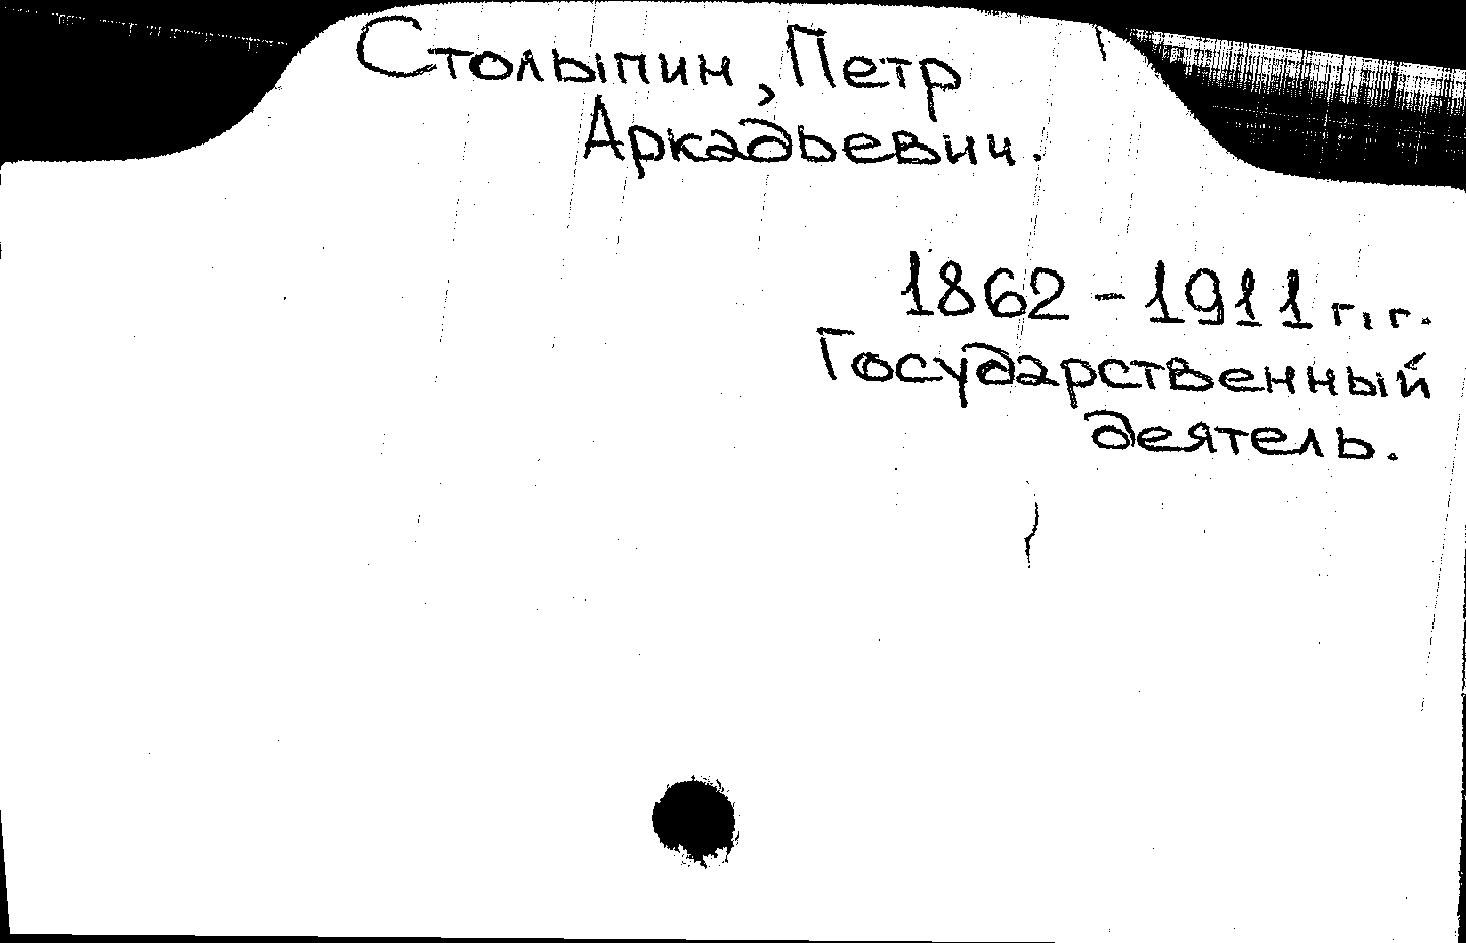 Столыпин, Петр
Аркадьевич.
1862-1911 г.г.
Государственный
деятель.